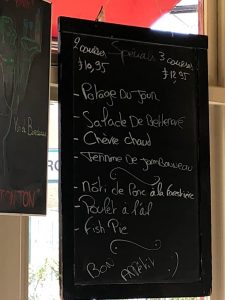 2 courses Specials 3 courses
£10,95 £12,95
- Potage Du Jour
- Salade De Betterave
- Chèvre chaud
- Terrine De Jambonneau
- Rôti de Porc à la forestière
- Poulet à l'ail
- Fish Pie
Bon Appétit !
TONTON